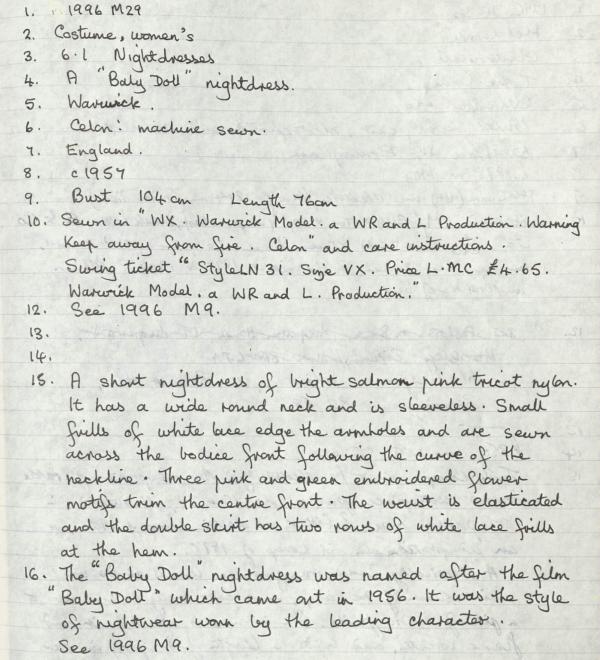 1. 1996 M29
2. Costume, women's
3. 6.1 Nightdresses
4. A "Baby Doll" nightdress.
5. Warwick.
6. Celon: machine sewn.
7. England.
8. c1957
9. Bust 104cm Length 76cm
10. Sewn in "WX. Warwick Model. a WR and L Production. Warning
Keep away from fire. Celon" and care instructions.
Swing ticket "Style LN 31. Size VX. Price L.MC £4.65.
Warwick Model. a WR and L. Production."
12. See 1996 M9.
13.
14.
15. A short nightdress of bright salmon pink tricot nylon.
It has a wide round neck and is sleeveless. Small
frills of white lace edge the armholes and are sewn
across the bodice front following the curve of the
neckline. Three pink and green embroidered flower
motifs trim the centre front. The waist is elasticated
and the double skirt has two rows of white lace frills
at the hem.
16. The "Baby Doll" nightdress was named after the film
"Baby Doll" which came out in 1956. It was the style
of nightwear worn by the leading character.
See 1996 M9.